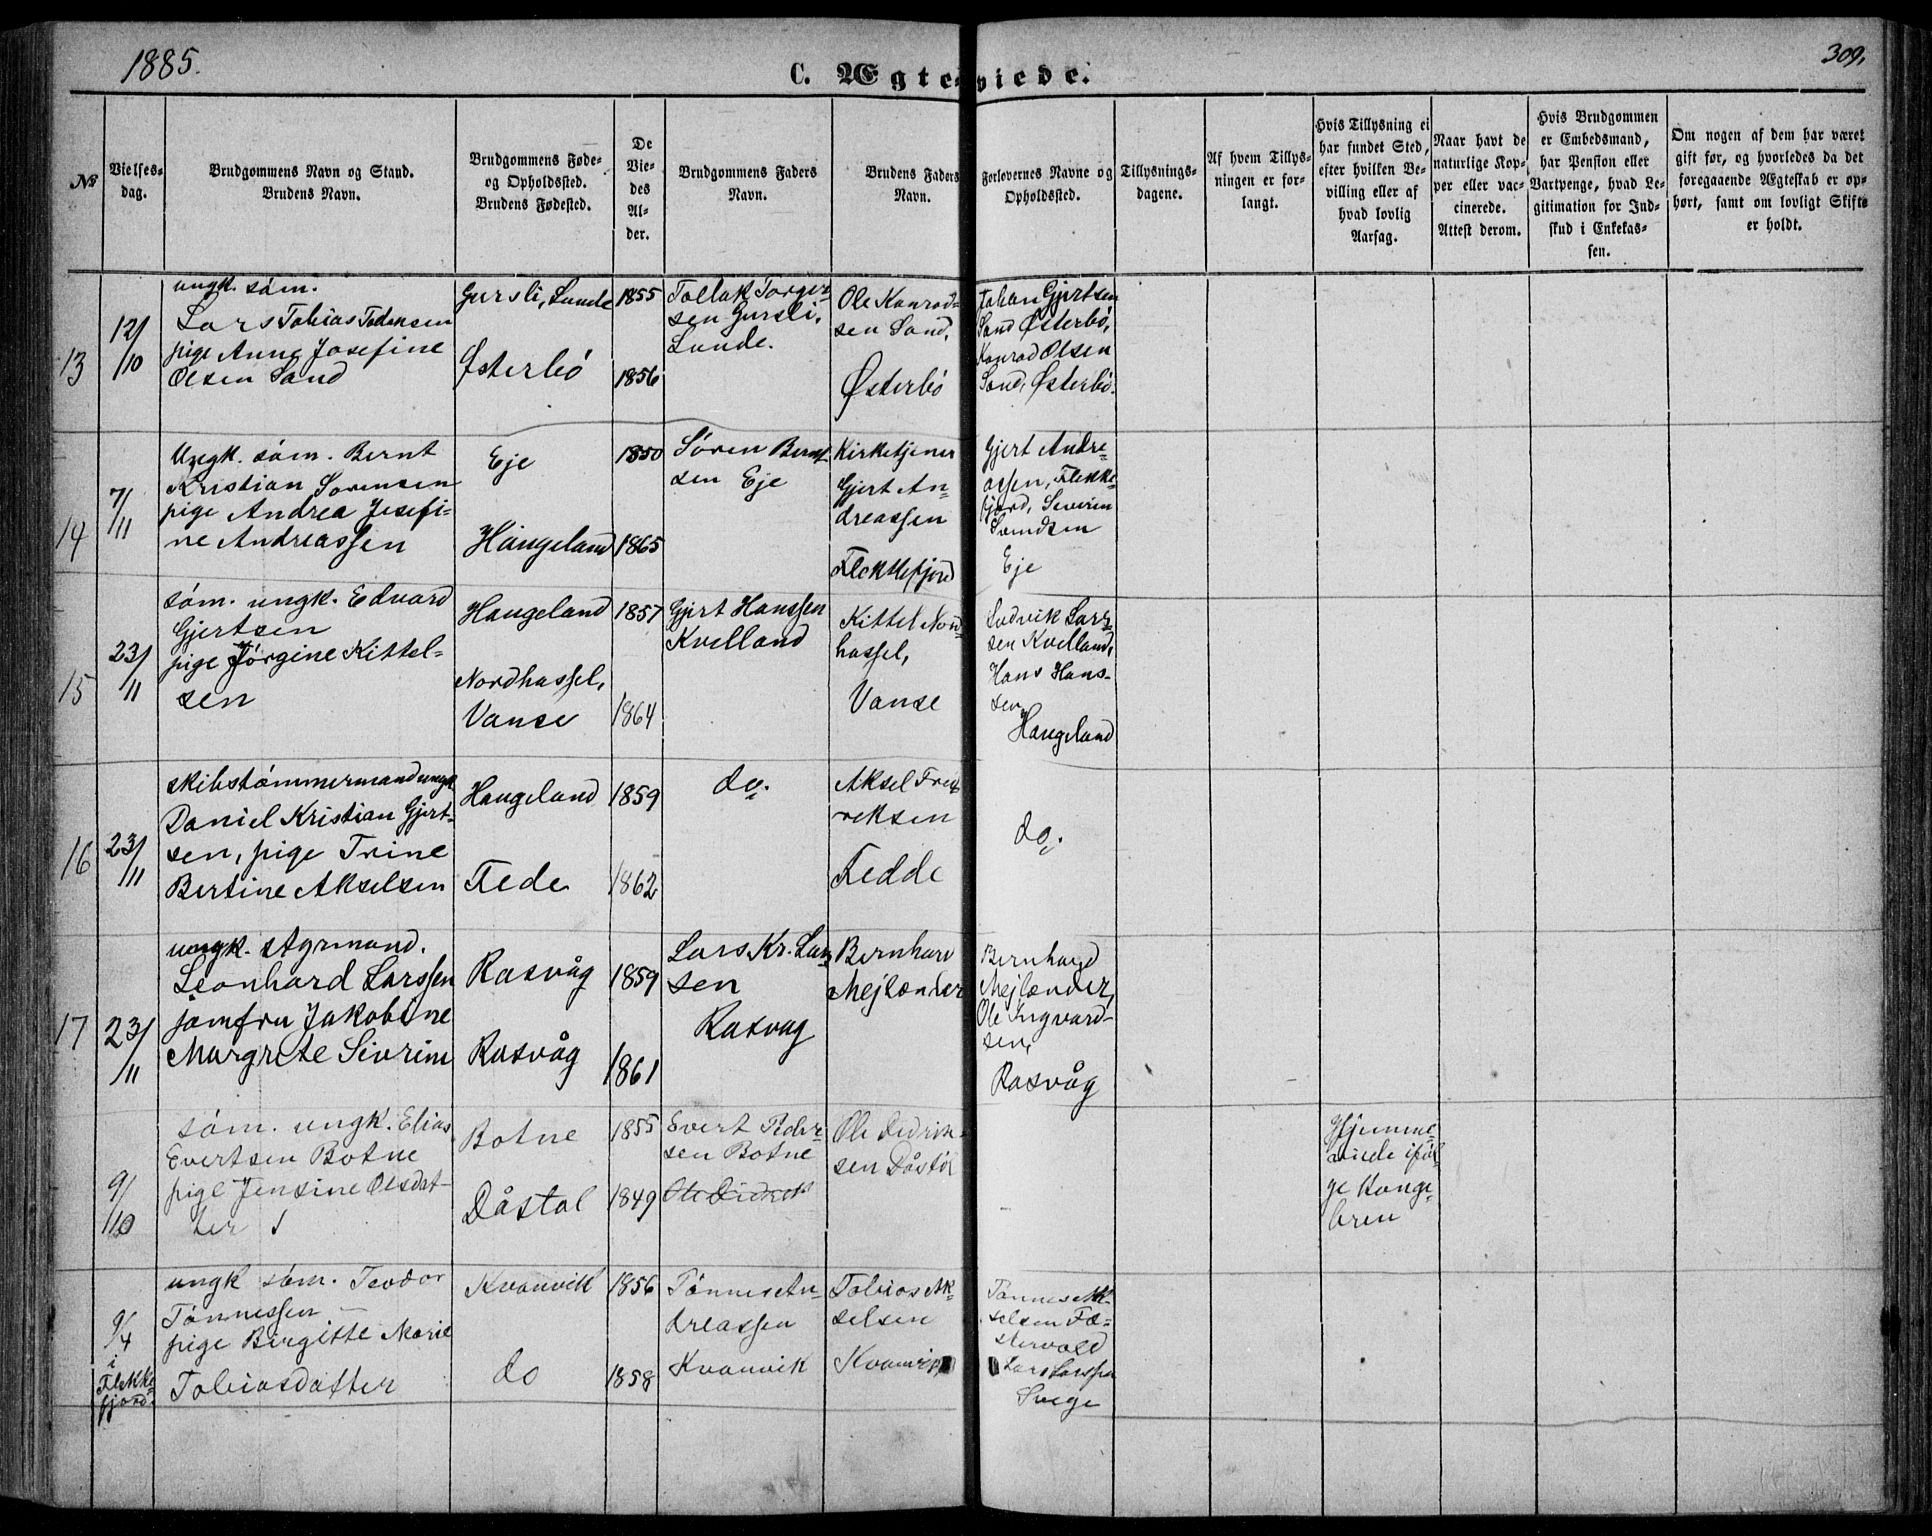 1885.
309,
C. Ægteviede.
No
Vielses-
dag.
Brudgommens Navn og Stand.
Brudens Navn.
Brudgommens Føde-
og Opholdssted.
Brudens Fødested.
De
Vie-
des
Al-
der.
Brudgommens Faders
Navn.
Brudens Faders
Navn.
Forlovernes Navne og
Opholdssted.
Tillysnings-
dagene.
Af hvem Tillys-
ningen er for-
langt.
Hvis Tillysning ei
har fundet Sted,
efter hvilken Be-
villing eller af
hvad lovlig
Aarsag.
Naar havt de
naturlige Kop-
per eller vac-
cinerede.
Attest derom.
Hvis Brudgommen
er Embedsmand,
har Pension eller
Vartpenge, hvad Le-
gitimation for Ind-
skud i Enkekas-
sen.
Om nogen af dem har været
gift før, og hvorledes da det
foregaaende Ægteskab er op-
hørt, samt om lovligt Skifte
er holdt.
13
12/10
ungk. søm.
Lars Tobias
pige Anne Josefine
Olsen Sand
Gursli, Lunde
Østerbö
1855
1856
Tollak Torger-
sen Gursli,
Lunde.
Ole Konrad-
sen Sand,
Østerbö
Johan Gjertsen
Sand Østerbö,
Konrad Olsen
Sand, Østerbö.
14
7/11
Ungk. søm. Bernt
Kristian Sørensen
pige Andrea Josefi-
ne Andreassen
Eje
Haugeland
1850
1865
Søren Bernt-
sen Eje
Kirketjener
Gjert An-
dreassen
Flekkefjord
Gjert Andre-
assen, Flekke-
fjord, Severin
Svendsen
Eje
15
23/11
søm. ungk. Edvard
Gjertsen
pige Jörgine Kittel-
sen
Haugeland
Nordhassel,
Vanse
1857
1864
Gjert Hanssen
Kvelland
Kittel Nord-
hassel,
Vanse
Ludvik Lars-
sen Kvelland,
Hans Hans-
sen
Haugeland
16
23/11
skibstømmermand ungk.
Daniel Kristian Gjert-
sen, pige Trine
Bertine Akselsen
Haugeland
Fede
1859
1862
do.
Aksel Fred-
reksen
Fedde
do.
17
23/11
ungk. styrmand.
Leonhard Larssen
jomfru Jakobine
Margrete Sivrine
Rasvåg
Rasvåg
1859
1861
Lars Kr. Lars-
sen
Rasvag
Bernhard
Mejlænder
Bernhard
Mejlænder,
Ole Ingvard-
sen,
Rasvåg
9/10
søm. ungk. Elias
Evertsen Botne
pige Jensine Olsdat-
ter
Botne
Dåstøl
1855
1849
Evert Peder-
sen Botne
Ole Didrek
Ole Didrik-
sen Dåstøl
Hjemme-
viede iføl-
ge Konge-
bren
9/4
i
Flekke-
fjord.
ungk søm. Teodor
Tönnessen
pige Birgitte Marie
Tobiasdatter
Kvanvik
do
1856
1858
Tönnes An-
dreassen
Kvanvik
Tobias Ak-
selsen
Kvanvik
Tönnes Ak-
selsen Fæ-
stervold
Lars Larssen
Svege